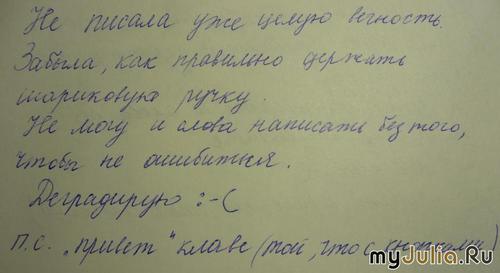 Не писала уже целую вечность.
Забыла, как правильно держать
шариковую ручку.
Не могу и слова написать без того,
чтобы не ошибиться.
Деградирую :-(
П.С. „привет“ клаве (той, что с кнопками)
myJulia.Ru